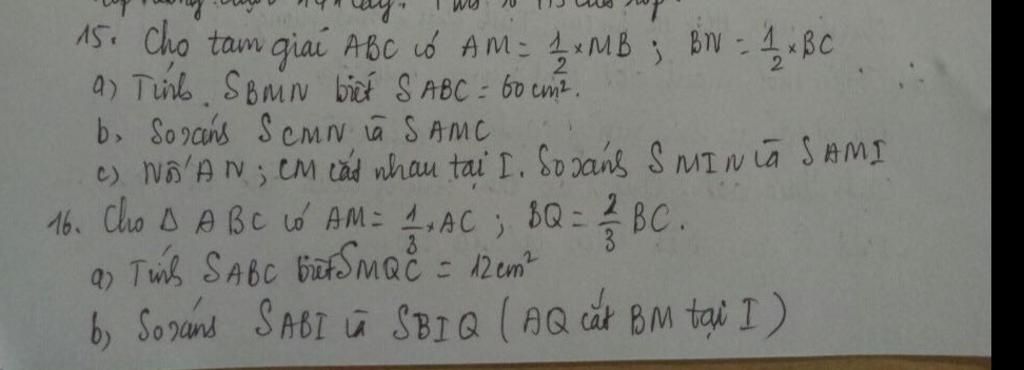 15. Cho tam giác ABC có AM = 1/2 × MB ; BN = 1/2 × BC
a) Tính SBMN biết SABC = 60cm².
b, So sánh SCMN và SAMC
c) Nối AN ; CM cắt nhau tại I. So sánh SMIN và SAMI
16. Cho Δ ABC có AM = 1/3 × AC ; BQ = 2/3 BC.
a) Tính SABC biết SMQC = 12cm²
b) So sánh SABI và SBIQ (AQ cắt BM tại I)